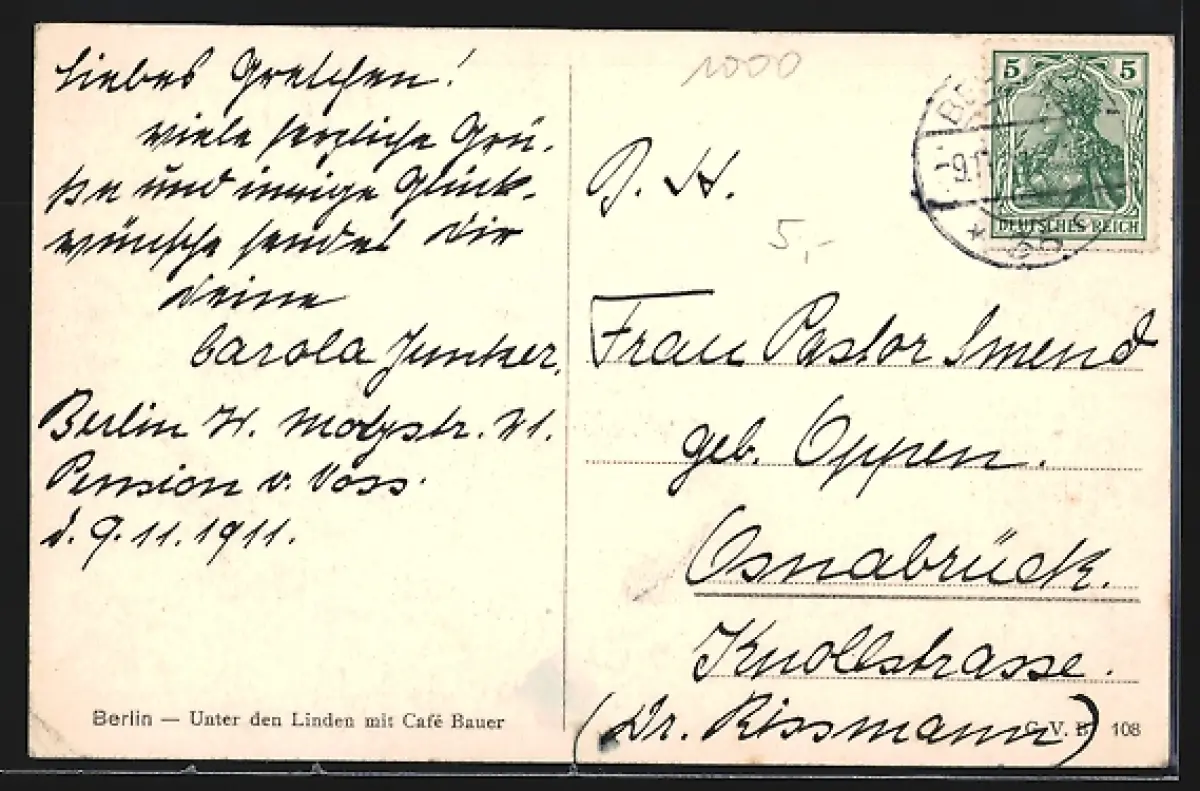 Liebes Gretchen!
viele herzliche Grü-
ße und innige Glück-
wünsche sendet Dir
Deine
Carola Junker.
Berlin W. Motzstr. 21.
Pension v. Voss.
d. 9.11.1911.
Berlin — Unter den Linden mit Café Bauer
1000
5 5
DEUTSCHES REICH
9.11
5,-
Frau Pastor Smend
geb. Oppen.
Osnabrück.
Knollstrasse.
(Dr. Rissmann)
G. V. B. 108